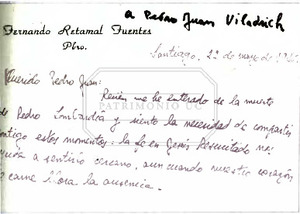 a Pedro Juan Viladrich
Fernando Retamal Fuentes
Pbro.
Santiago, 22 de mayo de
Querido Pedro Juan:
Recién me he enterado de la muerte
de Pedro Lombardía y siento la necesidad de compartir
contigo estos momentos. la fe en Jesús Resucitado nos
ayuda a sentirlo cercano, aun cuando nuestro corazón
de carne llora la ausencia.
PATRIMONIO UC